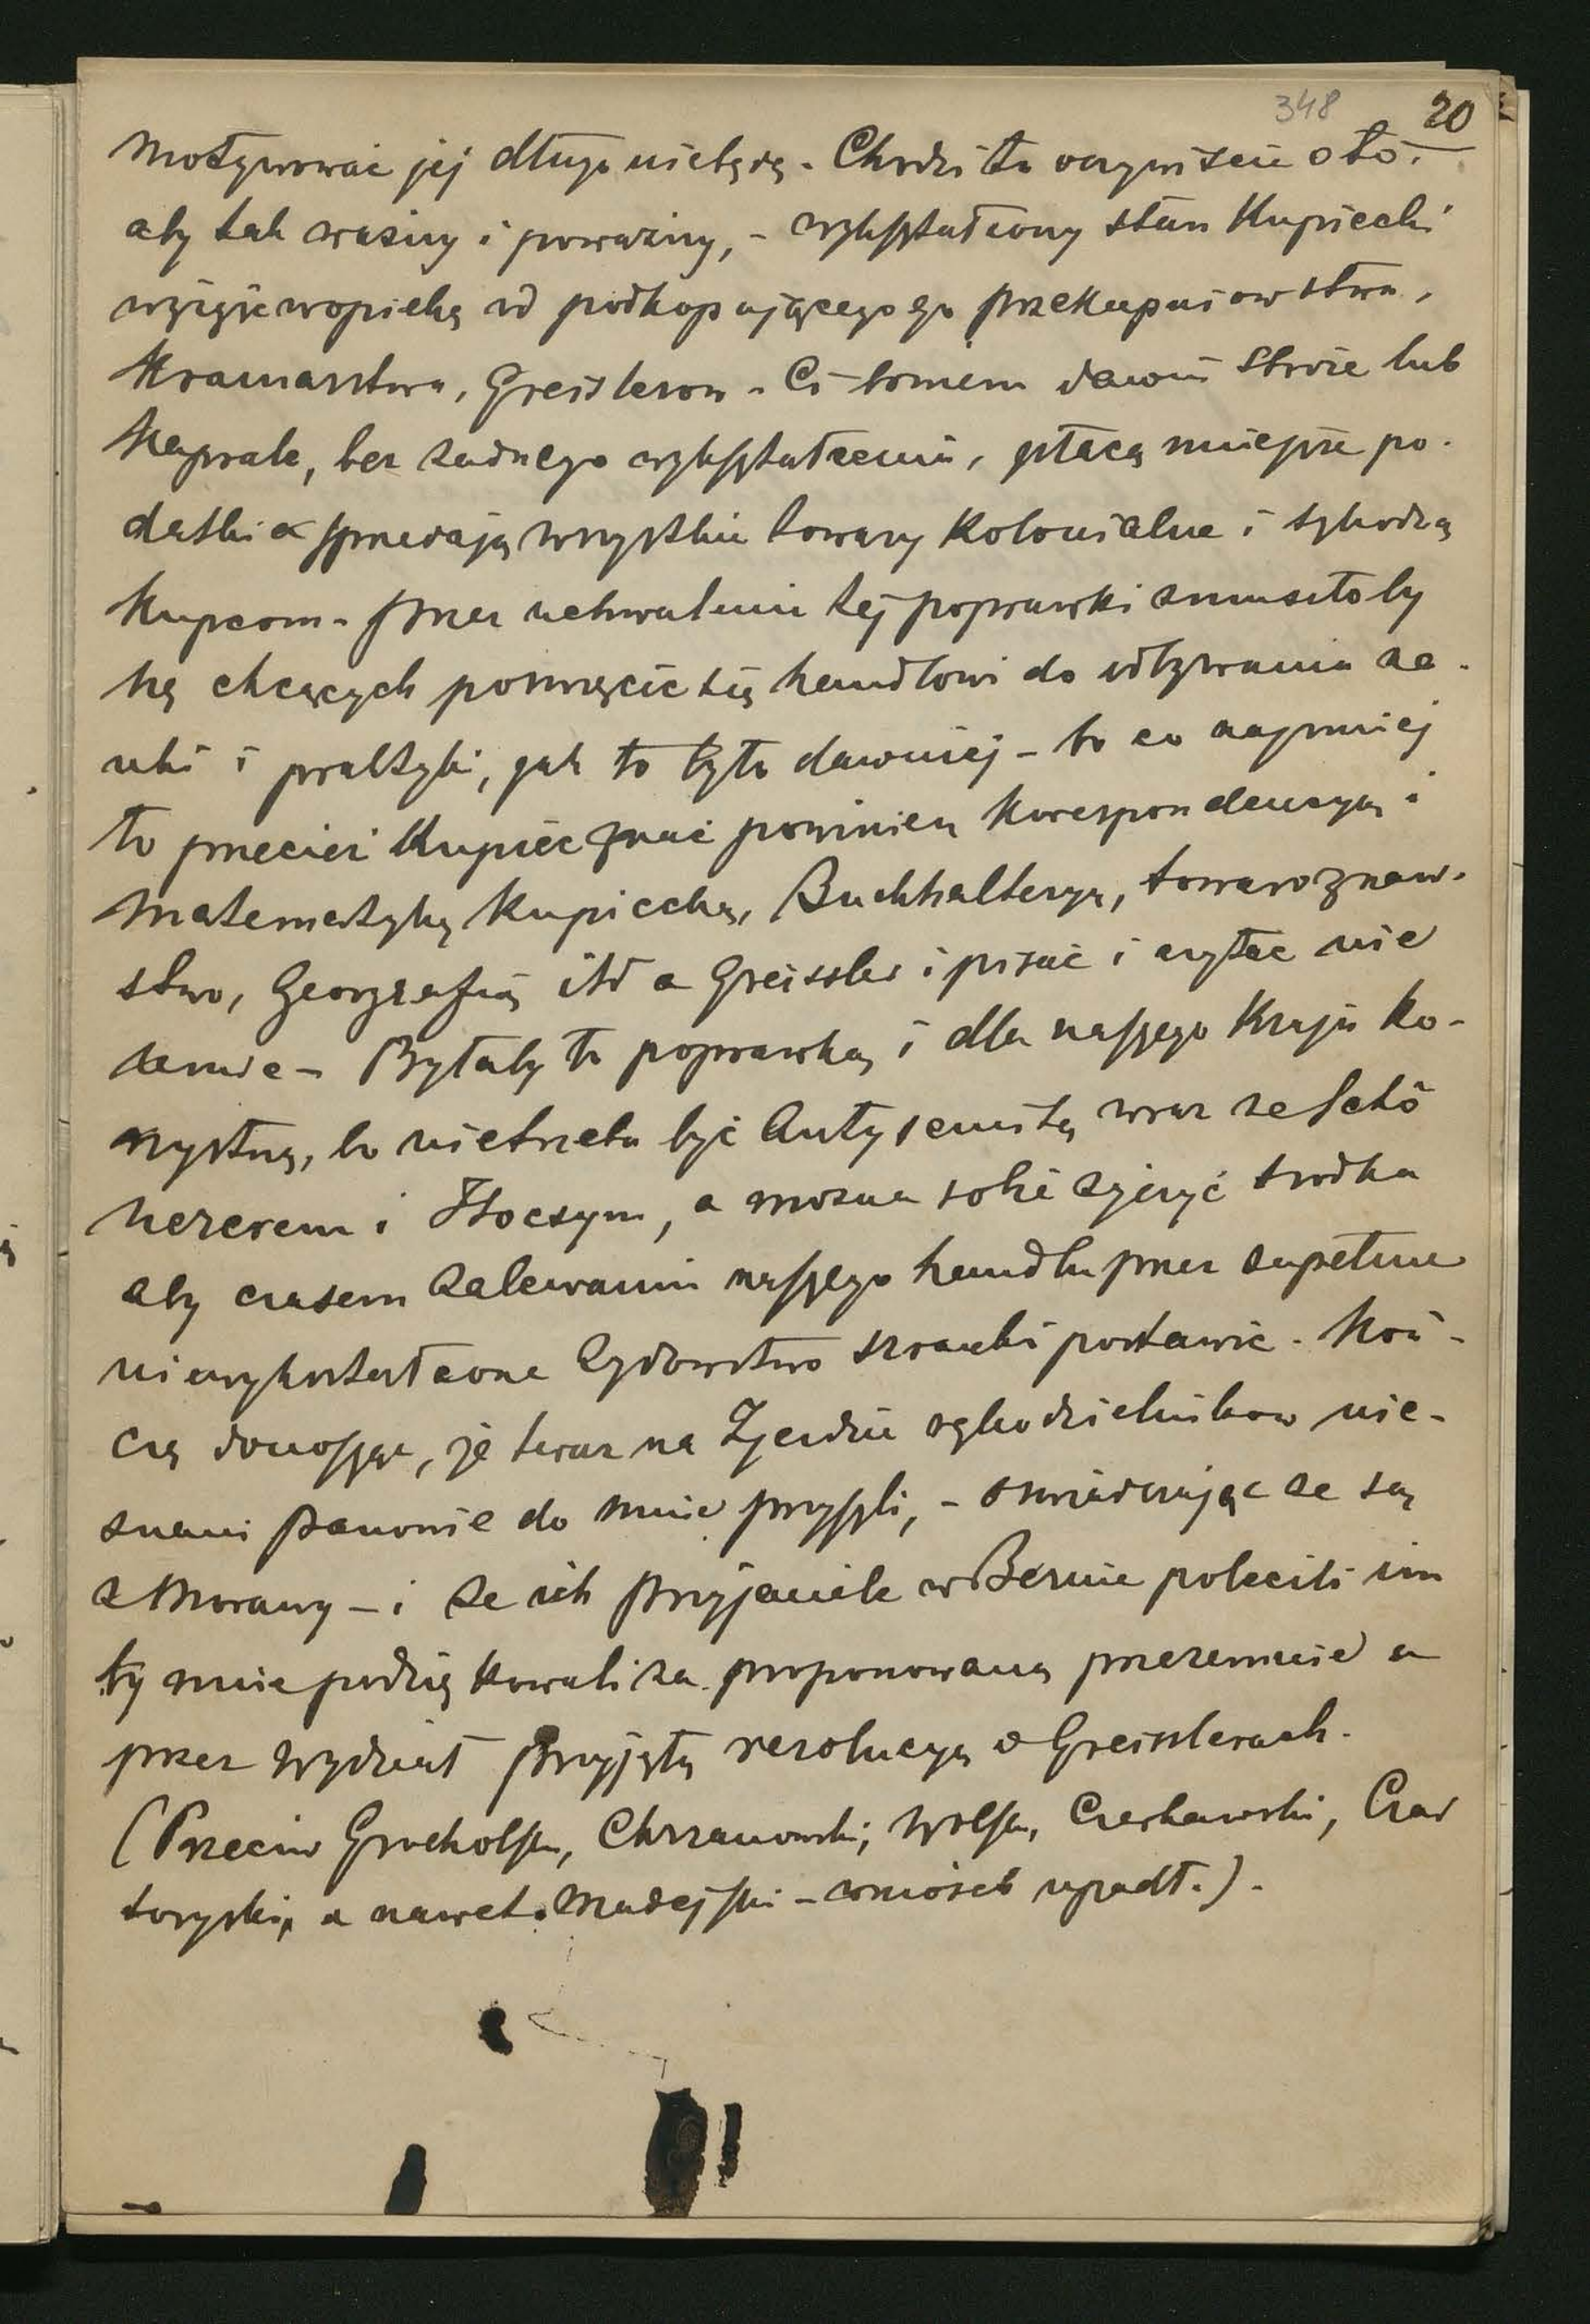 348 20
Motywować jej długo niebędę. Chodzi tu oczywiście o to.
aby tak ważny i poważny, - wykształcony stan Kupiecki
wziąść wopiekę od podkopującego go przekupniowstwa,
Kramarstwa, Greislerow. Ci bowiem dawni Stróże lub
Kaprale, bez żadnego wykształcenia, płacą mniejsze po-
datki a sprzedają wszystkie towary Kolonialne i szkodzą
Kupcom. Przez uchwalenie tej poprawki zmusiłoby
się chcących poswięcić się handlowi do odbywania na-
uki i praktyki, jak to było dawniej - bo co najmniej
to przecież Kupiec znać powinien Korespondencyą i
Matematykę Kupiecką, Buchhalteryą, towaroznaw-
stwo, Geografią itd a Greissler i pisać i czytać nie
umie - Byłaby to poprawka i dla naszego Kraju ko-
rzystną, bo nietrzeba być Antysemitą wraz ze Schö
nererem i Stocsym, a można sobie życzyć środka
aby czasem zalewaniu naszego handlu przez zupełnie
niewykształcone Żydowstwo szranki postawić. Koń-
czę donosząc, że teraz na Zjezdzie rękodzielnikow nie-
znani Panowie do mnie przyszli, - oswiadczając ze są
z Morawy - i ze ich Przyjaciele w Bernie polecili im
by mnie podziękowali za proponowaną przezemnie a
przez Wydział przyjętą rezolucyą o Greisslerach.
(Przeciw Grocholski, Chrzanowski, Wolski, Czerkawski, Czar
toryski, a nawet Madejski - wniosek upadł.).